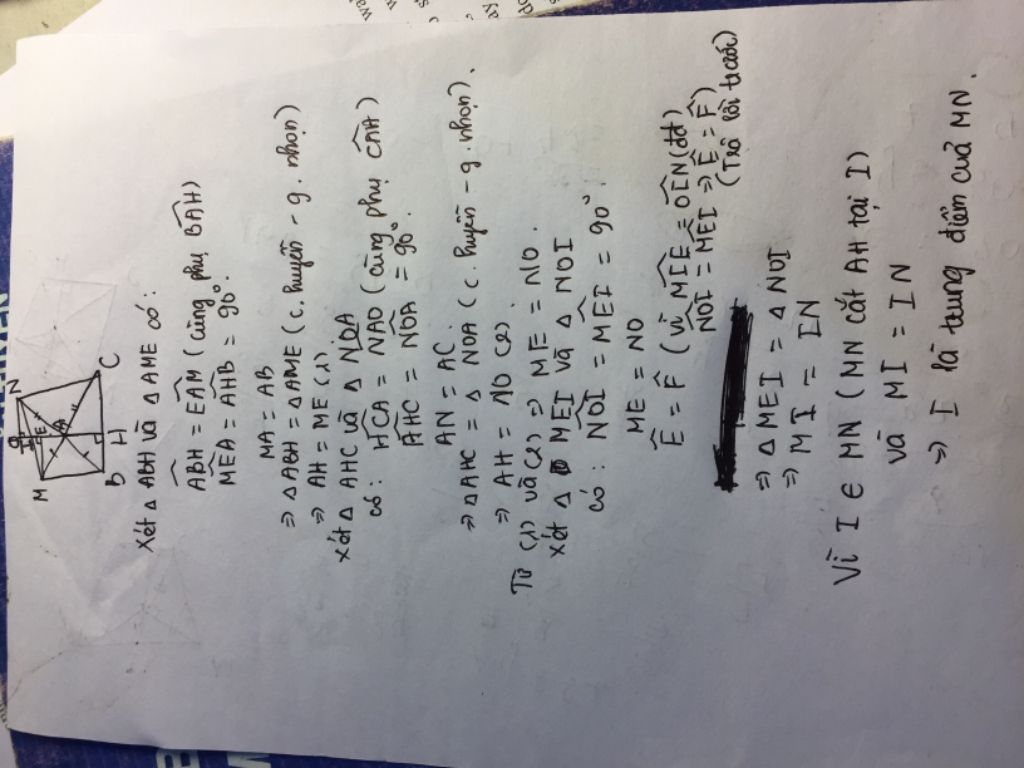 M
N
O
E
I
A
B
H
C
Xét Δ ABH và Δ AME có:
ABH = EAM (cùng phụ BAH)
MEA = AHB = 90°.
MA = AB
⇒ Δ ABH = Δ AME (c. huyền - g. nhọn)
⇒ AH = ME (1)
Xét Δ AHC và Δ NOA
có: HCA = NAO (cùng phụ CAH)
AHC = NOA = 90°
AN = AC
⇒ Δ AHC = Δ NOA (c. huyền - g. nhọn).
⇒ AH = NO (2)
Từ (1) và (2) ⇒ ME = NO.
Xét Δ MEI và Δ NOI
có: NOI = MEI = 90°
ME = NO
E = F (vì MIE = OIN (đđ)
NOI = MEI ⇒ E = F)
(Trả lời trước)
⇒ Δ MEI = Δ NOI
⇒ MI = IN
Vì I ∈ MN (MN cắt AH tại I)
và MI = IN
⇒ I là trung điểm của MN.